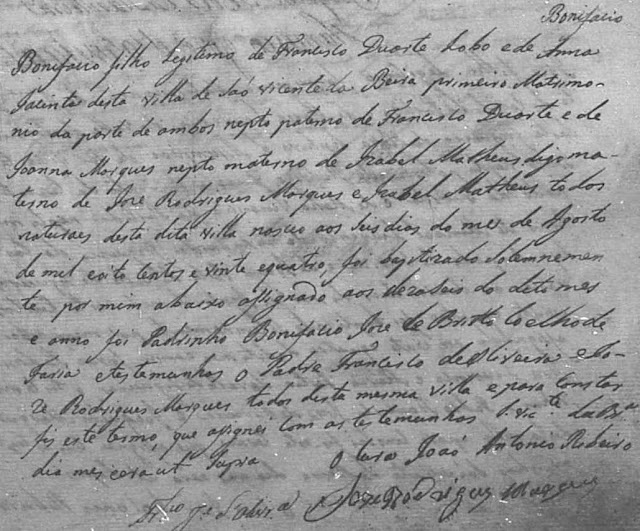 Bonifacio
Bonifacio filho legitimo de Francisco Duarte Lobo e de Anna
Jacinta desta villa de Saõ Vicente da Beira primeiro Matrimo-
nio da parte de ambos nepto paterno de Francisco Duarte e de
Joanna Marques nepto materno de Izabel Matheus digo ma-
terno de Joze Rodrigues Marques e Izabel Matheus todos
naturaes desta dita villa nasceo aos seis dias do mes de Agosto
de mil oito centos e vinte e quatro, foi baptizado Solemnemen
te por mim abaixo assignado aos dezaseis do dito mes
e anno foi Padrinho Bonifacio Joze de Britto Coelho de
Faria e testemunhas o Padre Francisco de Oliveira e Jo-
ze Rodrigues Marques todos desta mesma villa e para constar
fis este termo, que asignei com as testemunhas S. Victe da Bra
dia mes e era ut Supra
O Cura Joaõ Antonio Ribeiro
Joze Rodrigues Marques